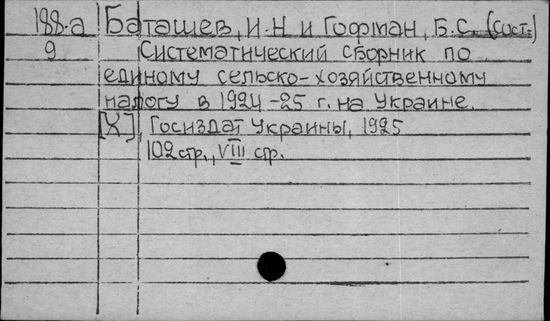 188.а Баташев, И.Н и Гофман, Б.С. (сост.)
9 Систематический сборник по
единому сельско-хозяйственному
налогу в 1924-25 г. на Украине.
[Х], Госиздат Украины, 1925
102 стр., VIII стр.